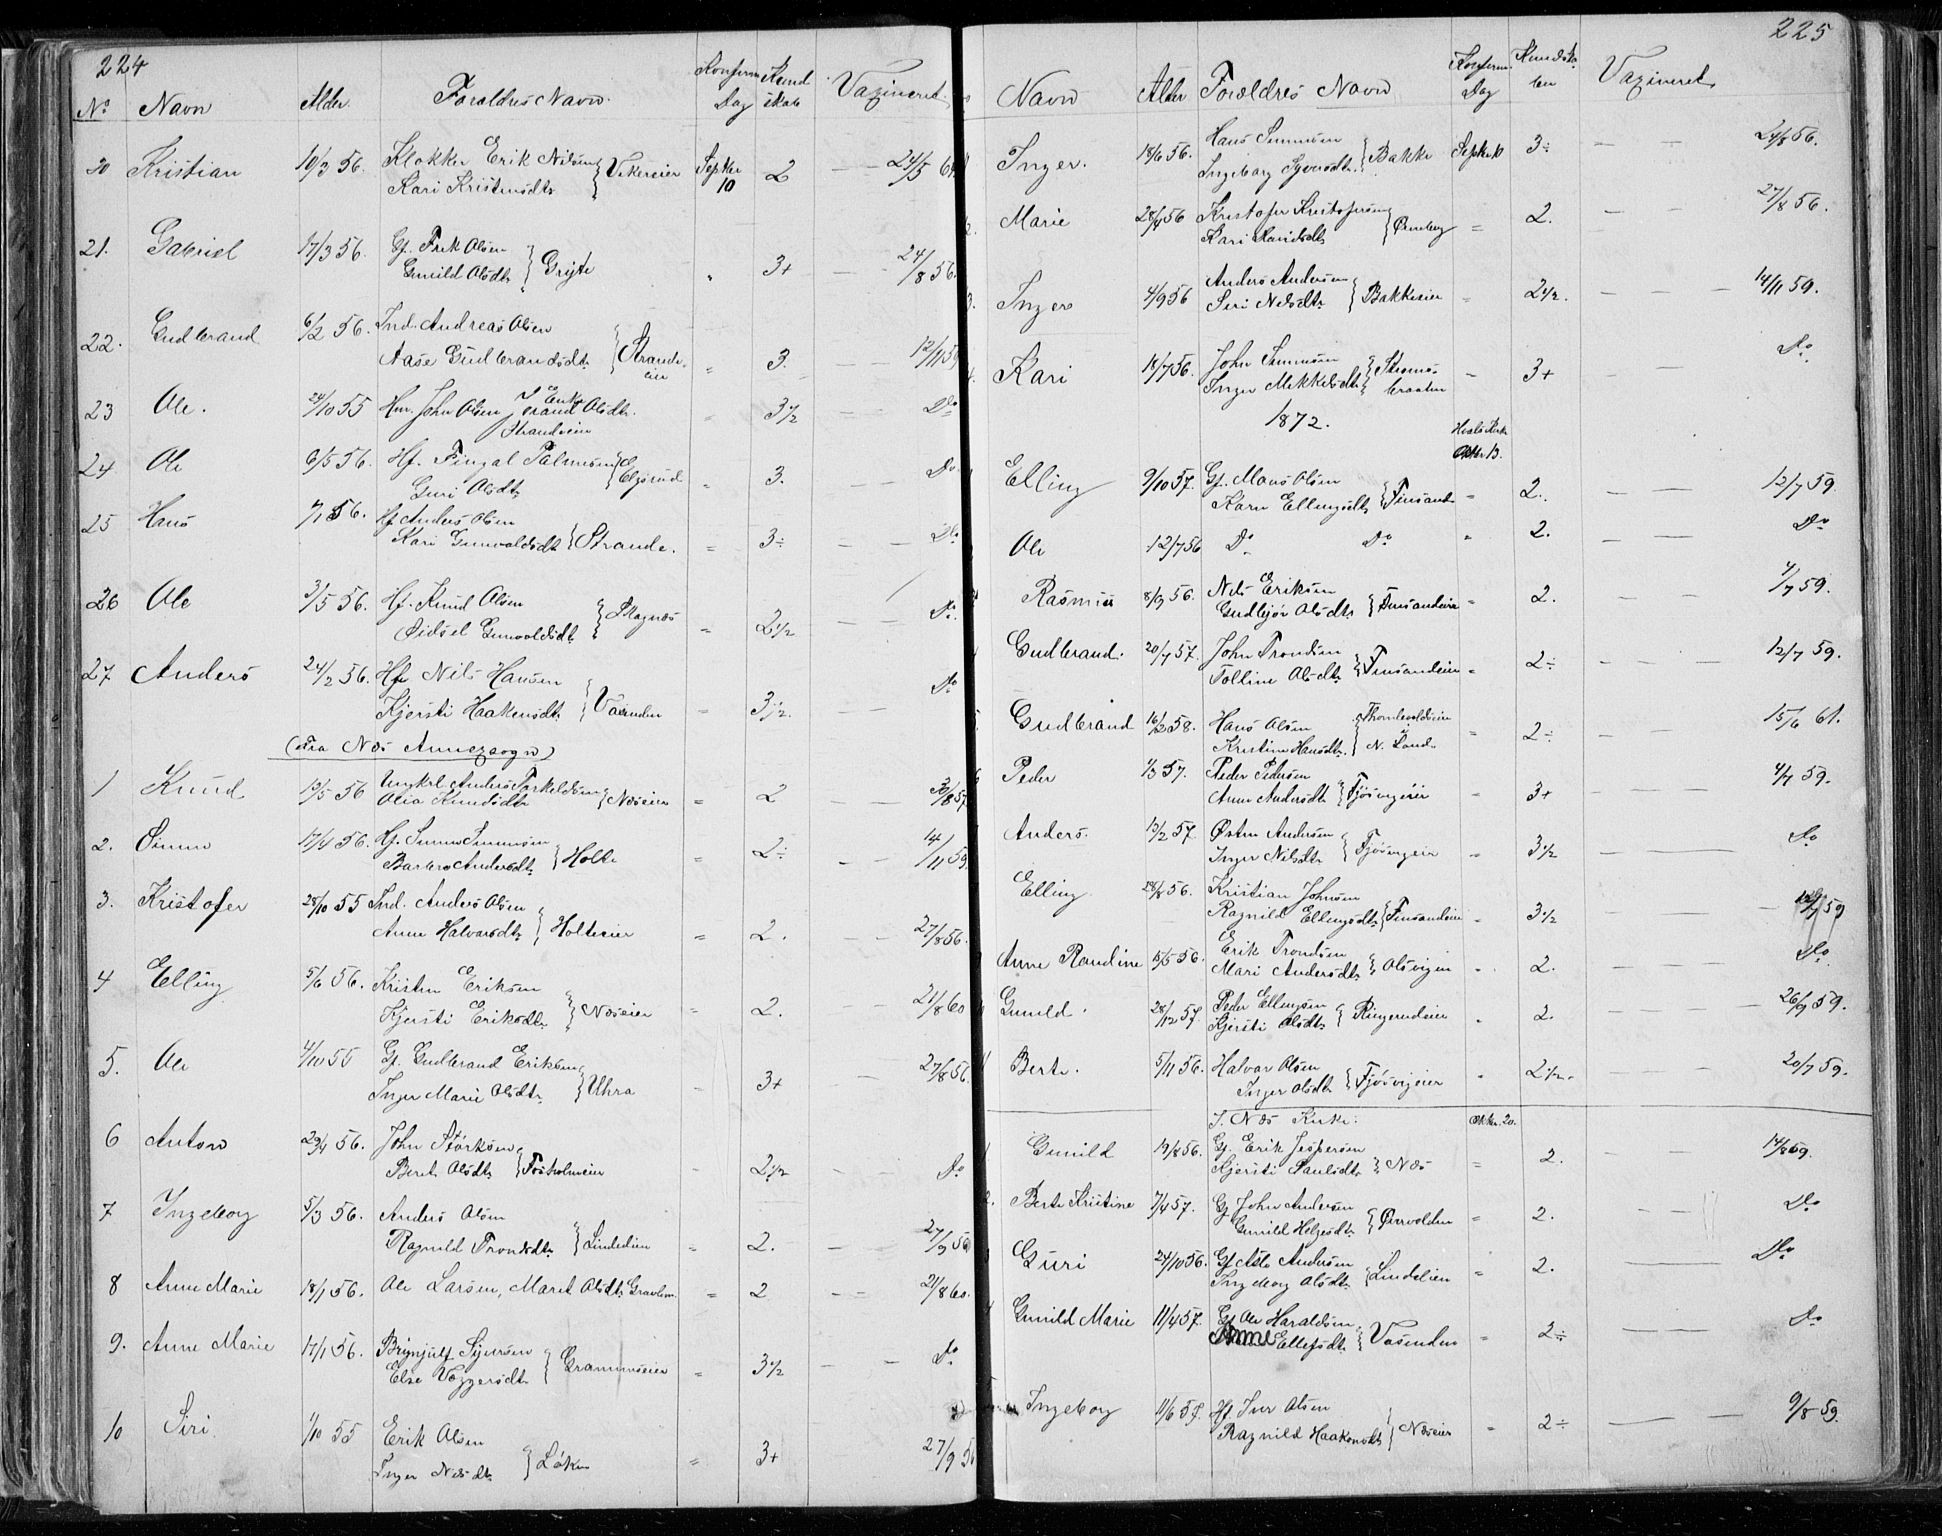 224
No Navn Alder Forældres Navn. Konfirm Dag Kund skab Vaxineret
20 Kristian 10/3 56. Klokker Erik Nilsen Kari Kristensdtr } Vikereier Septbr 10 2 — 24/5 64
21. Gabriel 17/3 56. Gf. Erik Olsen Gunild Olsdtr } Grijte " 3+ — 24/8 56.
22. Gudbrand 6/2 56. Ind. Andreas Olsen Aase Gudbrandsdtr } Strande eier " 3. — 12/11 59
23 Ole. 24/10 55 Hm. John Olsen, Enke Olsdtr. Strandeeier " 3 1/2 Do
24 Ole 6/5 56. Hf. Fingal Palmesen Guri Olsdtr } Elsrud " 3. — Do
25 Hans 7/1 56. Hf Anders Olsen Kari Gunvaldsdtr } Strande. = 3÷ — Do
26 Ole 3/5 56. Hf. Knud Olsen Sidsel Gunvoldsdtr } Skagnæs = 2 1/2 — Do.
27 Anders 24/2 56. Hf Nils Hansen Kjersti Haakensdtr } Vasenden = 3 1/2. — Do
(Fra Næs Annexsogn)
1 Knud 13/5 56 Ungkrl Anders Torkeldsen Olia Knudsdtr } Næseier = 2 — 30/8 57
2. Simen 17/4 56. Hf. Simen Simensen Barbro Andersdtr } Holte = 2÷ — 14/11 59.
3. Kristofer 28/10 55 Ind. Anders Olsen Anne Halvorsdtr } Holteeier = 2. — 27/8 56.
4 Elling 5/6 56. Kristen Eriksen Kjersti Eriksdtr } Næseier = 2. — 21/8 60
5. Ole 4/10 55 Gf. Gudbrand Eriksen Inger Marie Olsdtr } Uhra - 3+ — 27/8 56.
6 Anton 29/4 56. John Størksen Berit Olsdtr } Fosholmeier - 2 1/2 — Do
7 Ingeborg 5/3 56. Anders Olsen Ragnild Trondsdtr } Lindelien = 2. — 27/9 56
8 Anne Marie 18/1 56. Ole Larsen, Marit Olsdtr Gravlien = 2 — 21/8 60.
9. Anne Marie 17/1 56. Brynjulf Sjursen Else Viggersdtr } Grammseier = 3 1/2 — Do
10 Siri. 1/10 55 Erik Olsen Inger Nilsdtr } Løken = 3+ 27/9 5
225
Navn Alder Forældres Navn Konfirm. Dag Kundska ber Vaxineret
Inger. 18/6 56. Hans Simensen Ingeborg Syversdtr } Bakke Septbr 10 3÷ — — 24/8 56.
Marie 28/4 56 Kristofer Kristofersen Kari Knudsdtr } Ørenberg = 2. — — 27/8 56.
Inger 4/9 56 Anders Andersen Siri Nilsdtr } Bakkeeier = 2 1/2. — — 14/11 59.
Kari 18/7 56. John Simensen Inger Mikkelsdtr } Strømsbraaten - 3+ Do.
1872. Hedals Kirke Oktbr 13.
Elling 9/10 57. Gf. Mons Olsen Karn Ellingsdtr } Finsand = 2. — — 12/7 59
Ole 12/7 56 Do Do " 2. — — Do
Rasmus 8/9 56. Nils Eriksen Gudbjør Olsdtr } Finsandeier = 2. — 4/7 59.
Gudbrand. 20/7 57. John Trondsen Tolline Olsdtr } Finsandeier = 2÷ — — 12/7 59.
Gudbrand 16/2 58. Hans Olsen Kristine Hansdtr. } Thomlevoldeier N. Land. = 2÷ — — 15/6 61.
Peder 1/3 57. Peder Pedersen Anne Andersdtr } Fjøsvigeier = 3+ — 4/7 59.
Anders. 13/2 57. Østen Andersen Inger Nilsdtr } Fjøsvigeier = 3 1/2 — Do
Elling 28/8 56. Kristian Johnsen Ragnild Ellingsdtr } Finsandeier = 3 1/2 — 12/7 59
Anne Randine 15/5 56. Erik Trondsen Mari Andersdtr } Olsvigen - 2. — — Do
Gunild 28/12 57. Peder Ellingsen Kjersti Olsdtr } Ringerudeier - 2. — — 26/9 59.
Berte. 5/11 56. Halvor Olsen Inger Olsdtr } Fjøsvigeier - 2 1/2. — — 20/7 59.
I Næs Kirke. Oktbr. 20.
Gunild 19/8 56. Gf. Erik Jespersen Kjersti Paulsdtr } Næs = 2. — — 14/8 69.
Berte Kristine 7/4 57. Gf John Andersen Gunild Helgesdtr } Ørevolden = 2. — — Do
Guri 24/10 56. Gf Asle Andersen Ingeborg Olsdtr } Lindelien = 2. Do
Gunild Marie 11/4 57. Gf Ole Haraldsen. Anne Ellefsdtr } Vasenden = 2÷ — Do
Ingeborg 11/6 57. Hf Iver Olsen Ragnild Haakonsdtr } Næseier = 2÷ — — 9/8 59.